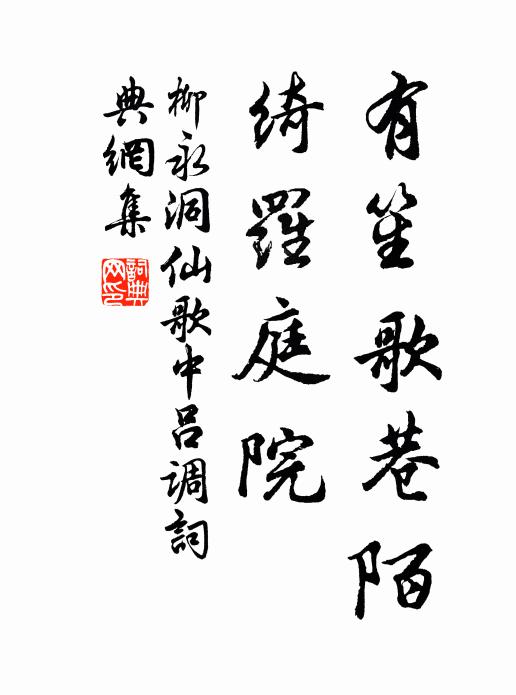 有笙歌巷陌
綺羅庭院
柳永洞仙歌中呂调詞
典網集
詞典
网印